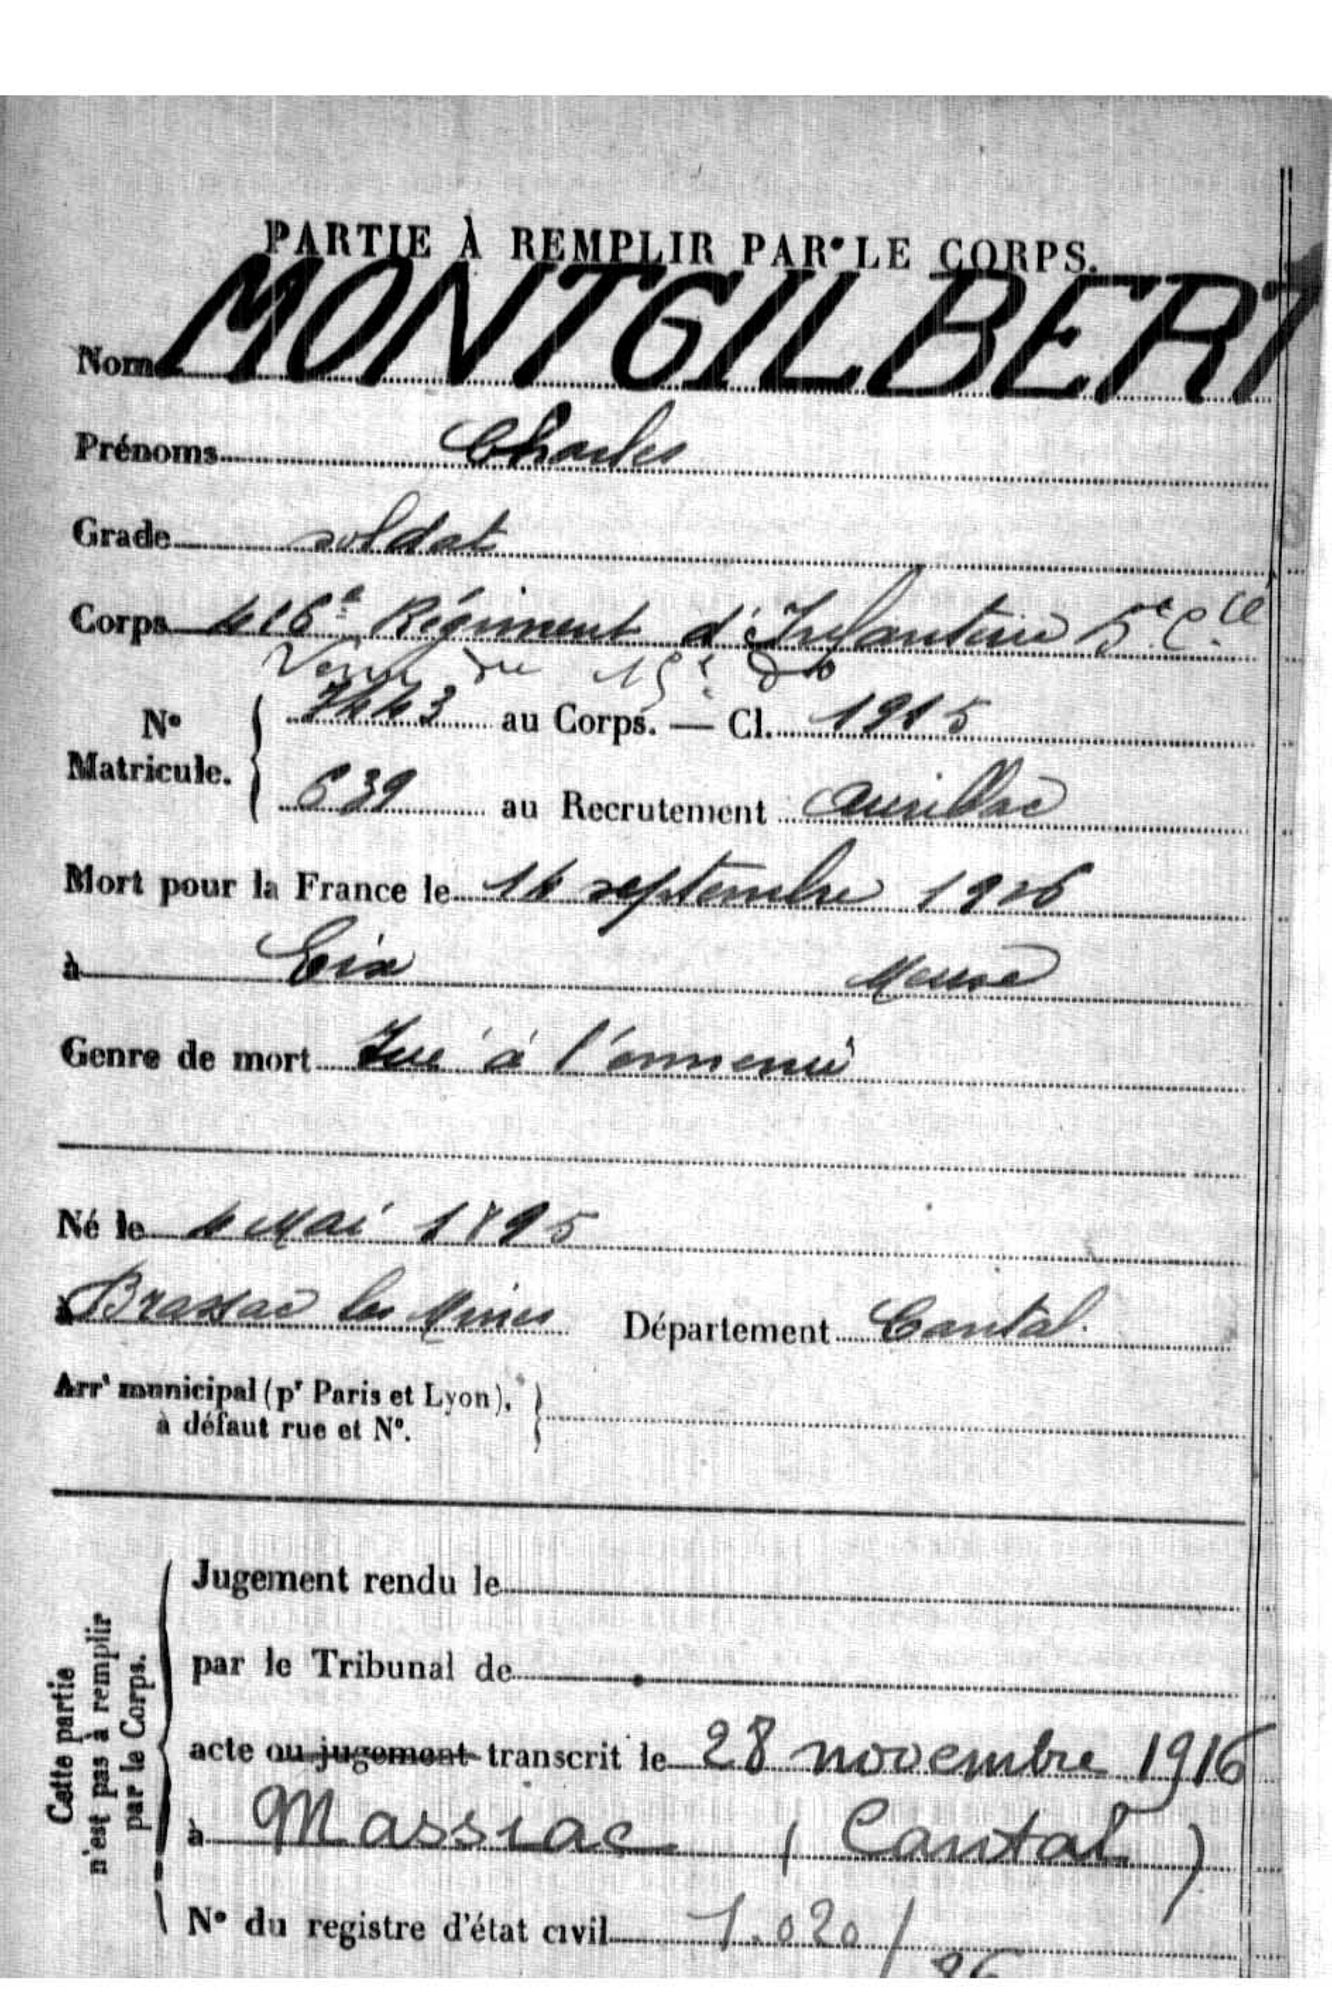 PARTIE À REMPLIR PAR LE CORPS.
Nom MONTGILBERT
Prénoms Charles
Grade soldat
Corps 416e Régiment d'Infanterie 5e Cie
Venu du 15e do
N° Matricule. 7443 au Corps. — Cl. 1915
639 au Recrutement Aurillac
Mort pour la France le 14 septembre 1916
à Eix Meuse
Genre de mort Tué à l'ennemi
Né le 4 Mai 1895
à Brassac les Mines Département Cantal.
Arrt municipal (pr Paris et Lyon),
à défaut rue et N°.
Cette partie
n'est pas à remplir
par le Corps.
Jugement rendu le
par le Tribunal de
acte ou jugement transcrit le 28 novembre 1916
à Massiac (Cantal)
N° du registre d'état civil 1.020/